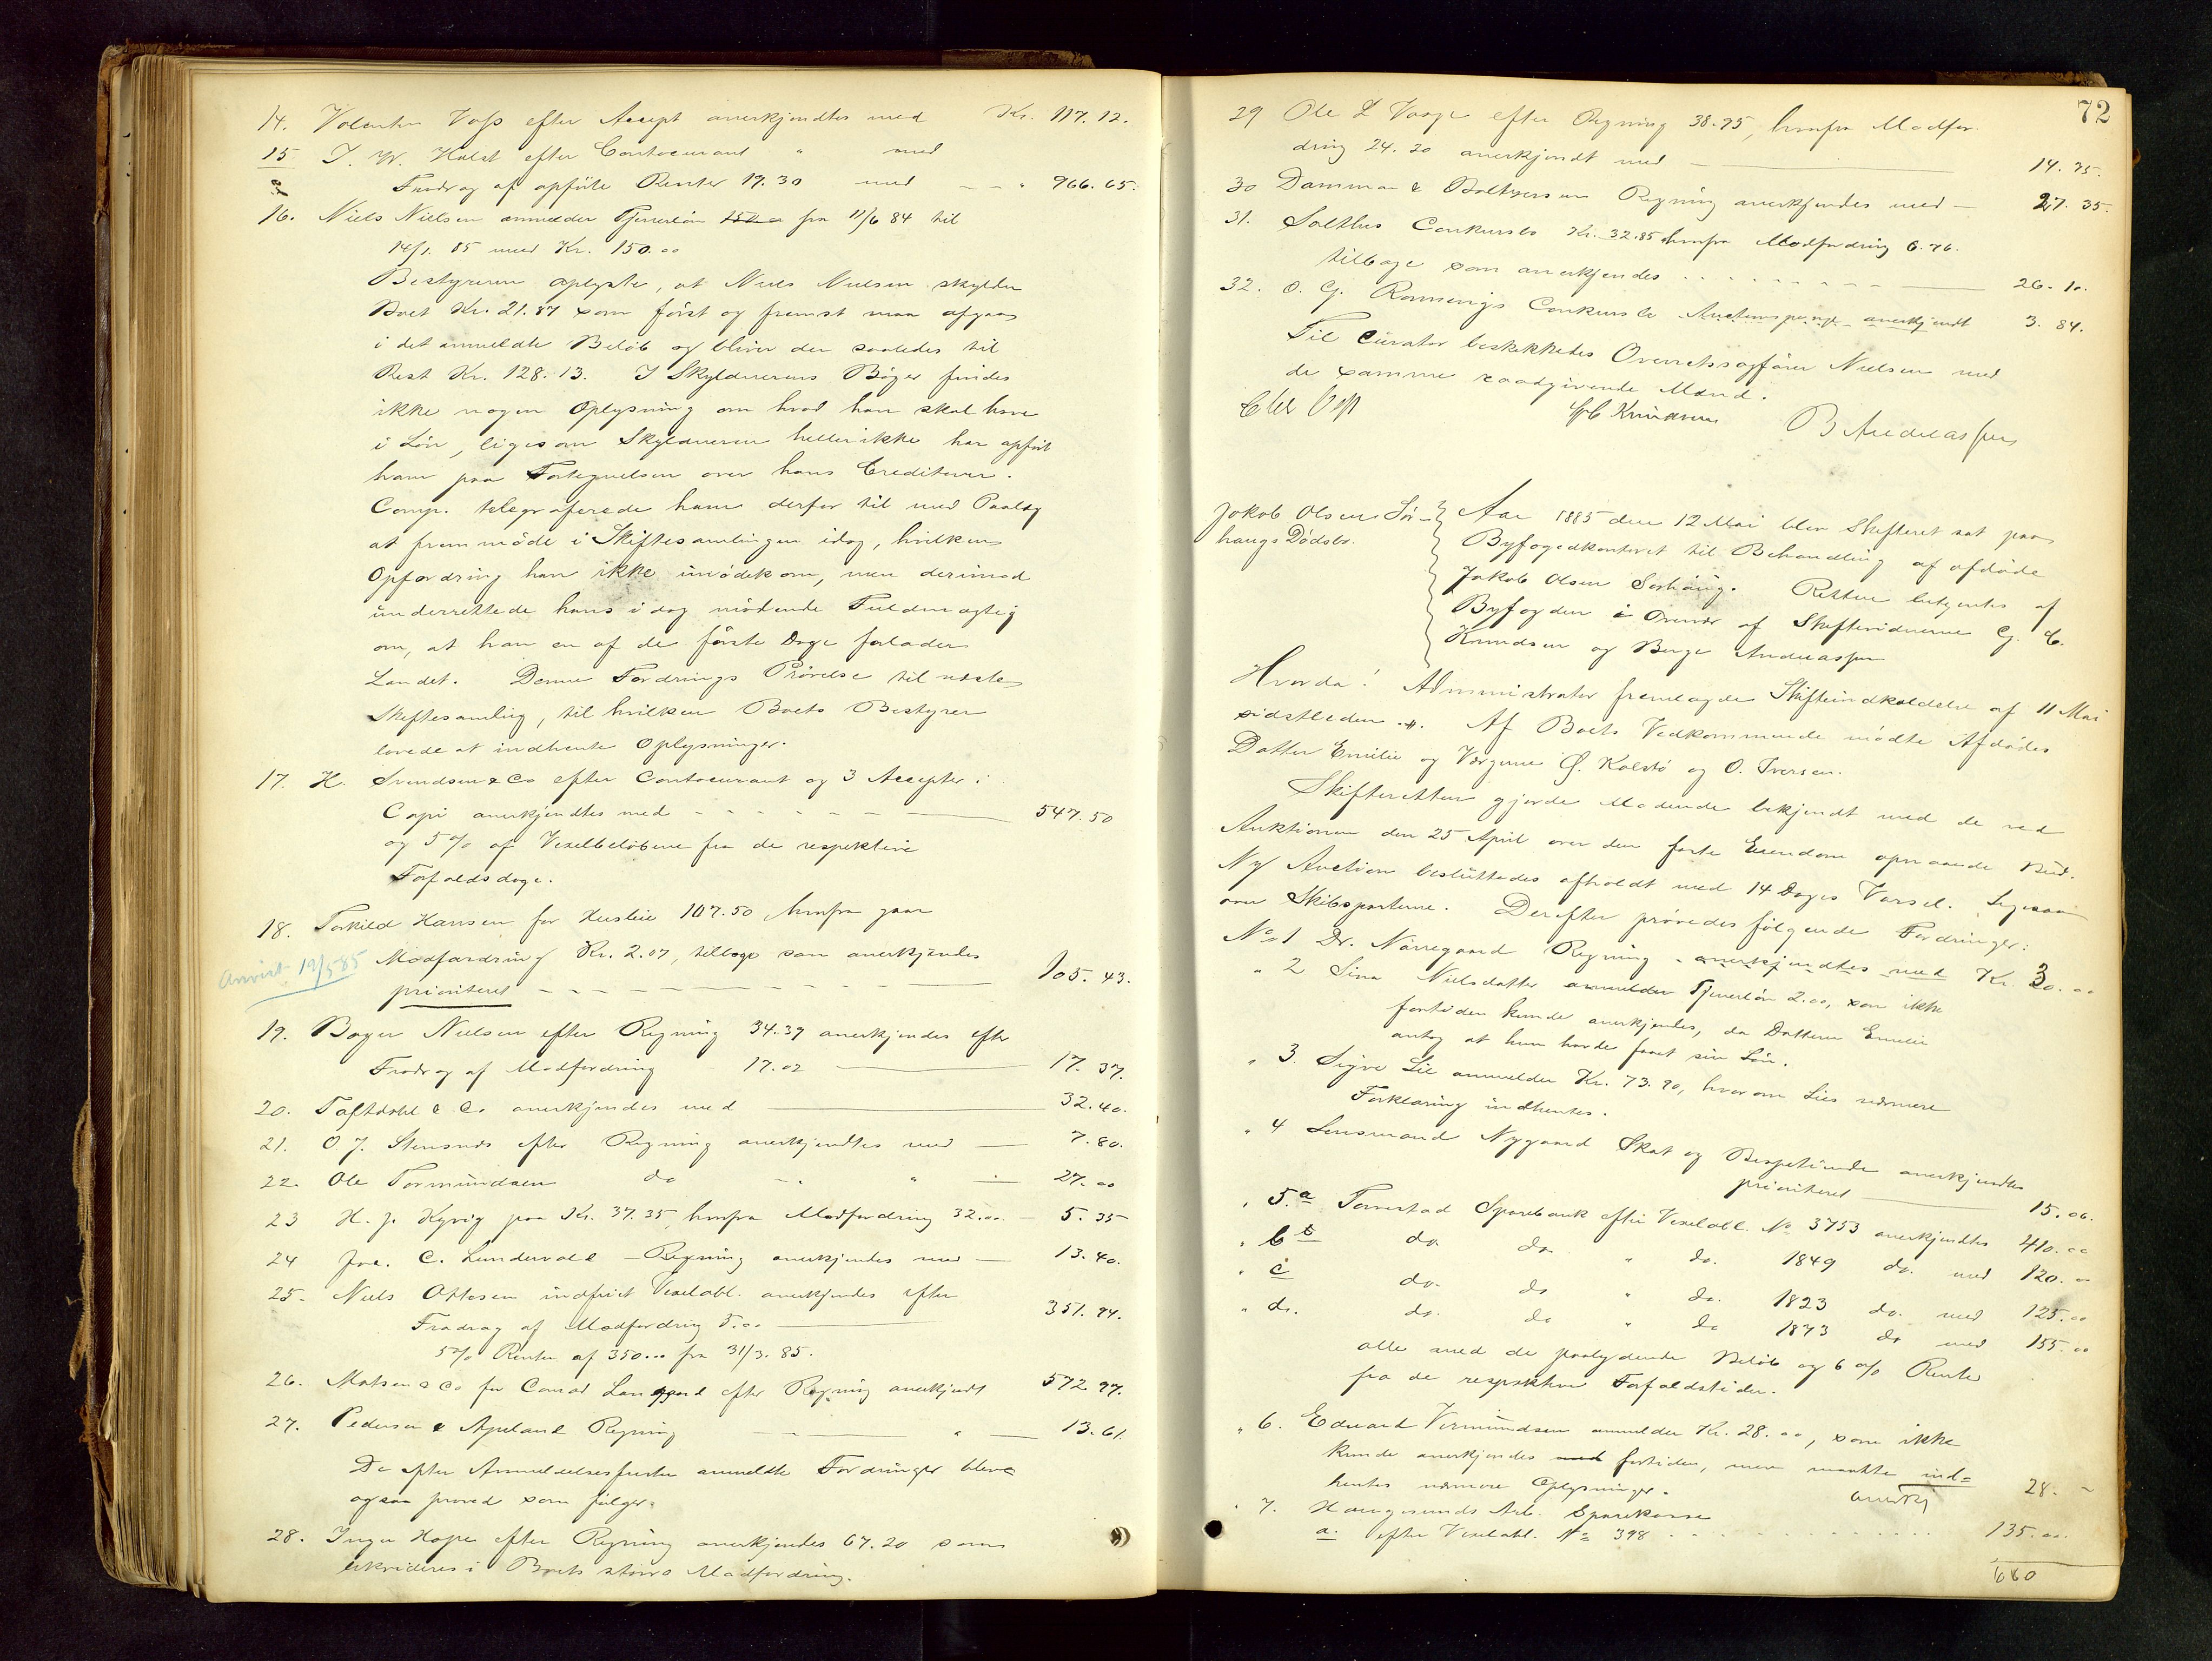 14. Valentin Voss efter Accept anerkjendtes med Kr. 117.12.
15 J. W. Holst efter Contocurant " med
Fradrag af opførte Renter 19.30 med — — " 966.65.
16. Niels Nielsen anmelder Tjenerløn fra 11/6 84 til
14/1. 85 med Kr. 150.00
Bestyreren oplyste, at Niels Nielsen skylder
Boet Kr. 21.87 som først og fremst maa afgaa
i det anmeldte Beløb og bliver der saaledes til
Rest Kr. 128.13. I Skyldnerens Bøger findes
ikke nogen Oplysning om hvad han skal have
i Løn, ligesom Skyldneren heller ikke har opført
ham paa Fortegnelsen over hans Creditorer.
Comp. telegraferede ham derfor til med Paalæg
at fremmøde i Skiftesamlingen idag, hvilken
Opfordring han ikke imødekom, men derimod
underrettede hans idag mødende Fuldmægtig
om, at han en af de første Dage forlader
Landet. Denne Fordrings Prøvelse til næste
Skiftesamling, til hvilken Boets Bestyrer
lovede at indhente Oplysninger.
17. H. Svendsen & Co efter Contocurant og 3 Accepter i
Copi anerkjendtes med - - - - - — 547.50
og 5% af Vexelbeløbene fra de respektive
Forfaldsdage.
18. Torkild Hansen for Husleie 107.50, hvorfra gaar
Anvist 19/5 85 Modfordring Kr. 2.07, tilbage som anerkjendes
prioriteret — — — — — 105.43.
19. Bøger Nielsen efter Regning 34.39 anerkjendes efter
Fradrag af Modfordring 17.02 — 17.37.
20. Toftdahl & Co anerkjendes med — 32.40.
21. O J. Stensnæs efter Regning anerkjendtes med — 7.80.
22. Ole Tormundsen do - . " — 27.00
23 H. J. Kyvig paa Kr. 37.35, hvorfra Modfordring 32.00 — 5.35
24 Joe. C. Lundevald — Regning anerkjendes med — 13.40.
25. Niels Ottesen indfriet Vexelobl. anerkjendes efter
Fradrag af Modfordring 5.00 — 351.94.
5% Renter af 350.00 fra 31/3. 85.
26. Matsen & Co for Conrad Langaard efter Regning anerkjendt 572.97.
27. Pedersen & Apeland Regning — " — 13.61.
De efter Anmeldelsesfristen anmeldte Fordringer bleve
ogsaa prøved som følger:
28. Inger Hope efter Regning anerkjendes 67.20 som
likvideres i Boets større Modfordring.
72
29 Ole L Vaage efter Regning 38.95, hvorfra Modfor-
dring 24.20 anerkjendt med — 14.75.
30 Damman & Baltzersen Regning anerkjendes med — 27.35.
31. Solthus Conkursbo Kr. 32.85 hvorfra Modfordring 6.76.
tilbage som anerkjendes . . . . . — 26.10.
32. O. G. Rønnevigs Conkursbo Auctionspenge anerkjendt 3.84.
Til Curator beskikkedes Overretssagfører Nielsen med
de samme raadgivende Mænd.
G C Knudsen B Andreassen
Jakob Olsen Sør-
haugs Dødsbo.
Aar 1885 den 12 Mai blev Skifteret sat paa
Byfogedkontoret til Behandling af afdøde
Jakob Olsen Sørhaug. Retten betjentes af
Byfogden i Overvær af Skiftevidnerne G. C.
Knudsen og Berge Andreassen
Hvorda! Administrator fremlagde Skifteindkaldelse af 11 Mai
sidstleden. Af Boets Vedkommende mødte Afdødes
Datter Emilie og Værgerne Ø. Kolstø og O. Iversen.
Skifteretten gjorde Mødende bekjendt med de ved
Auktionen den 25 April over den faste Eiendom opnaaede Bud.
Ny Auction besluttedes afholdt med 14 Dages Varsel. Ligesaa
over Skibsparterne. Derefter prøvedes følgende Fordringer:
No 1 Dr. Nørregaard Regning anerkjendtes med Kr. 30.00
" 2 Sina Nielsdatter anmelder Tjenerløn 2.00, som ikke
fortiden kunde anerkjendes, da Datteren Emilie
antog at hun havde faaet sin Løn.
" 3. Sigve Lie anmelder Kr. 73.90, hvorom Lies nærmere
Forklaring indhentes.
" 4 Lensmand Nygaard Skat og Bispetiende anerkjendtes
prioriteret — 15.06.
" 5.a Torvestad Sparebank efter Vexelobl. No 3753 anerkjendtes 410.00
" b do do " do. 1849 do. med 120.00
" c do. do " do. 1823 do. med 125.00
" d. do. do " do 1873 do med 155.00
alle med de paalydende Beløb og 6% Rente
fra de respektive Forfaldstider.
" 6. Edvard Vermundsen anmelder Kr. 28.00, som ikke
kunde anerkjendes fortiden, men maatte ind-
hentes nærmere Oplysninger. anerkj 28. -
" 7. Haugesunds Arb. Sparekasse
a. efter Vexelobl. No 398 . . . . . 135.00.
660